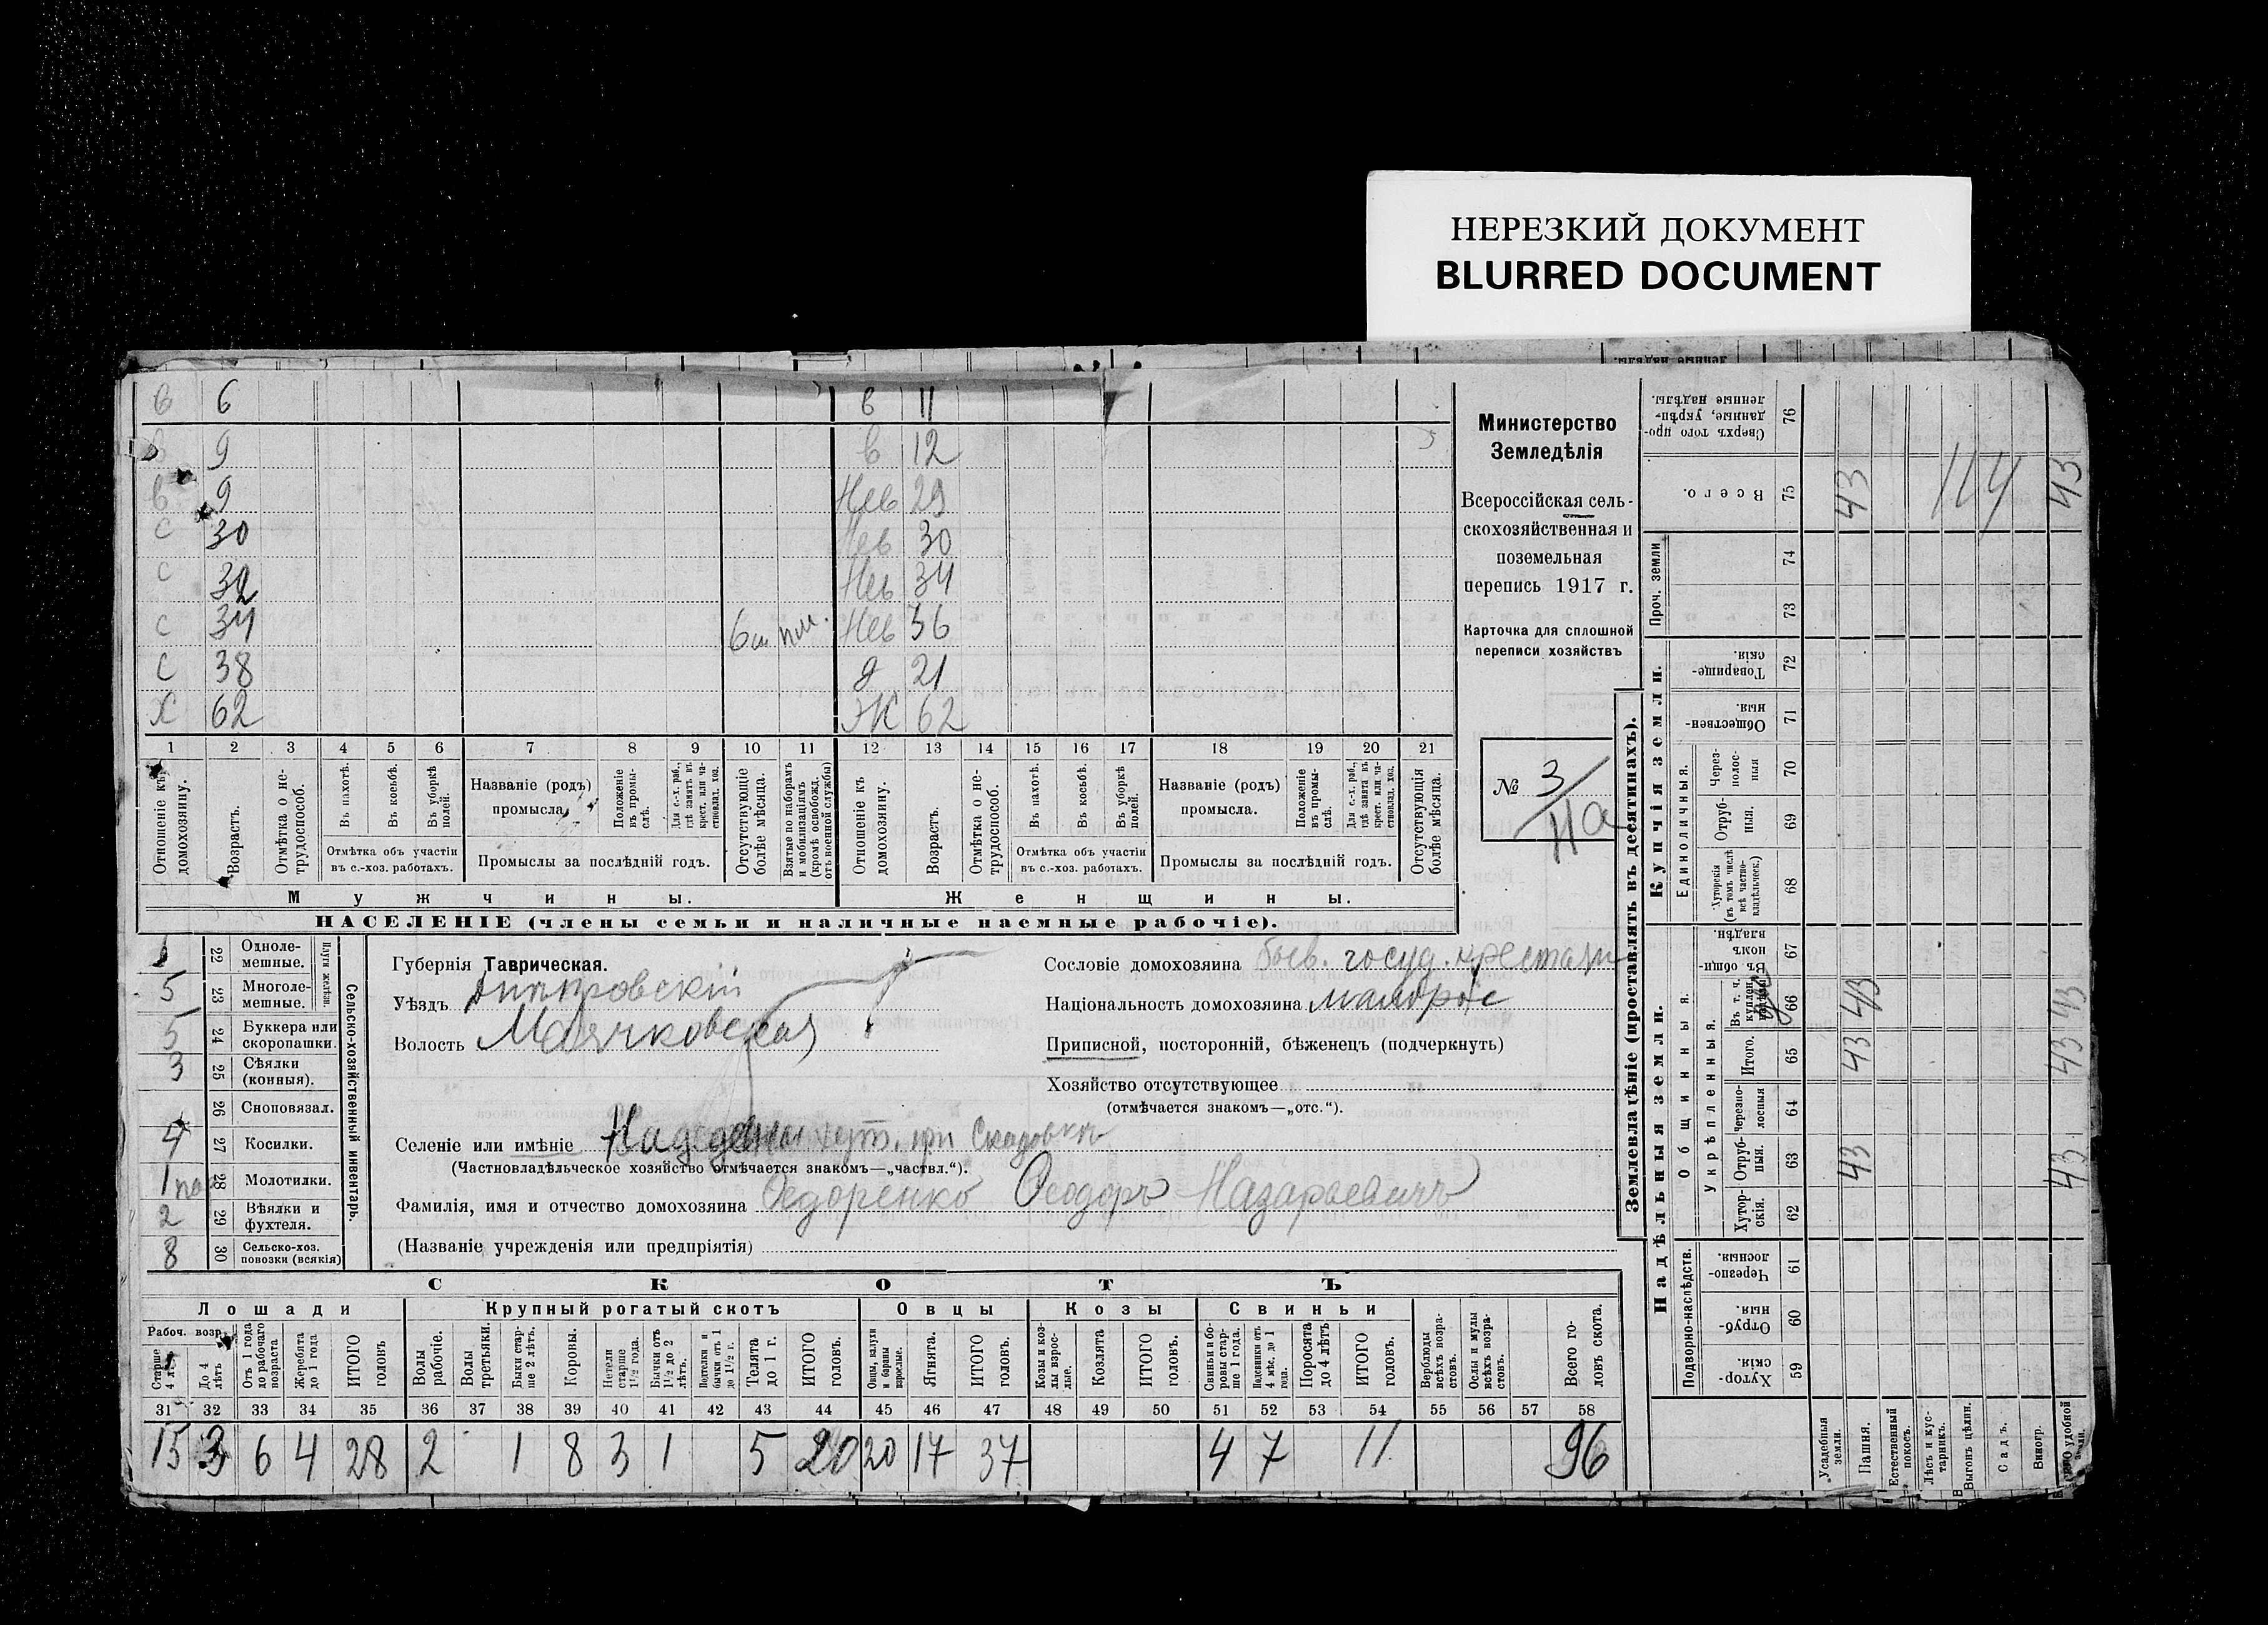 НЕРЕЗКИЙ ДОКУМЕНТ
BLURRED DOCUMENT
в 6 в 11
в 9 в 12
в 9 Нев 29
с 30 Нев 30
с 32 Нев 34
с 34 Нев 36
с 38 д 21
Х 62 Ж 62
1 2 3 4 5 6 7 8 9 10 11 12 13 14 15 16 17 18 19 20 21
Отношеніе къ домохозяину.
Возрастъ.
Отмѣтка о не-трудоспособ.
Въ пахотѣ.
Въ косьбѣ.
Въ уборкѣ полей.
Отмѣтка объ участіи въ с.-хоз. работахъ.
Названіе (родъ) промысла.
Положеніе въ промы-слѣ.
Для с.-х. раб., гдѣ занятъ въ крест. или ча-ствовлад. хоз.
Промыслы за послѣдній годъ.
Отсутствующіе болѣе мѣсяца.
Взятые по наборамъ и мобилизаціямъ (кромѣ освобожд. отъ военной службы)
Отношеніе къ домохозяину.
Возрастъ.
Отмѣтка о не-трудоспособ.
Въ пахотѣ.
Въ косьбѣ.
Въ уборкѣ полей.
Отмѣтка объ участіи въ с.-хоз. работахъ.
Названіе (родъ) промысла.
Положеніе въ промы-слѣ.
Для с.-х. раб., гдѣ занятъ въ крест. или ча-ствовлад. хоз.
Промыслы за послѣдній годъ.
Отсутствующія болѣе мѣсяца.
Мужчины. Женщины.
НАСЕЛЕНІЕ (члены семьи и наличные наемные рабочіе).
Министерство
Земледѣлія
Всероссійская сель-
скохозяйственная и
поземельная
перепись 1917 г.
Карточка для сплошной
переписи хозяйствъ
№ 3
11а
22 Одноле-мешные.
5 23 Многоле-мешные.
Плуги желѣзн.
5 24 Буккера или скоропашки.
3 25 Сѣялки (конныя).
26 Сноповязал.
4 27 Косилки.
1 28 Молотилки.
2 29 Вѣялки и фухтеля.
8 30 Сельско-хоз. повозки (всякія)
Сельско-хозяйственный инвентарь.
Губернія Таврическая.
Уѣздъ Днепровскій
Волость Маячковская
Селеніе или имѣніе хут. при Скадовкѣ
(Частновладѣльческое хозяйство отмѣчается знакомъ—„частвл.“).
Фамилія, имя и отчество домохозяина Федоренко Феодоръ Назарьевичъ
(Названіе учрежденія или предпріятія)
Сословіе домохозяина бывш. госуд. крестьян
Національность домохозяина малорос
Приписной, посторонній, бѣженецъ (подчеркнуть)
Хозяйство отсутствующее
(отмѣчается знакомъ—„отс.“).
СКОТЪ
Лошади Крупный рогатый скотъ Овцы Козы Свиньи
Рабоч. возр.
Старше 4 лѣтъ
До 4 лѣтъ
Отъ 1 года до рабочаго возраста
Жеребята до 1 года
ИТОГО головъ
Волы рабочіе.
Волы третьяки.
Быки стар-ше 2 лѣтъ.
Коровы.
Нетели старше 1½ года.
Бычки отъ 1½ до 2 лѣтъ.
Подтелки и бычки отъ 1 до 1½ г.
Телята до 1 г.
ИТОГО головъ.
Овцы, валухи и бараны взрослые.
Ягнята.
ИТОГО головъ.
Козы и коз-лы взрос-лые.
Козлята
ИТОГО головъ.
Свиньи и бо-ровы стар-ше 1 года.
Подсвинки отъ 4 мѣс. до 1 года.
Поросята до 4 лѣтъ
ИТОГО головъ.
Верблюды всѣхъ возра-стовъ.
Ослы и мулы всѣхъ возра-стовъ.
Всего го-ловъ скота.
31 32 33 34 35 36 37 38 39 40 41 42 43 44 45 46 47 48 49 50 51 52 53 54 55 56 57 58
15 3 6 4 28 2 1 8 3 1 5 20 20 17 37 4 7 11 96
Землевладѣніе (проставлять въ десятинахъ).
Надѣльныя земли. Купчія земли. Проч. земли
Подворно-наслѣдств. Общинныя. Укрѣпленныя. Единоличныя.
59 Хутор-скія.
60 Отруб-ныя.
61 Черезпо-лосныя.
62 Хутор-скія.
63 Отруб-ныя.
64 Черезпо-лосныя
65 Итого.
66 Въ т. ч. куплен.
67 Въ общин-номъ владѣн.
68 Хуторскія (въ томъ числѣ всѣ частно-владѣльческ.)
69 Отруб-ныя.
70 Через-полос-ныя
71 Обществен-ныя.
72 Товарище-скія.
73 74
75 Всего.
76 Сверхъ того про-данные, укрѣп-ленные надѣлы.
Усадебныя земли.
Пашня. 43 43 43 43
Естественный покосъ.
Лѣсъ и кус-тарникъ.
Выгонъ цѣлин.
Садъ.
Виногр.
Всего удобной земли. 43 43 43 43
114